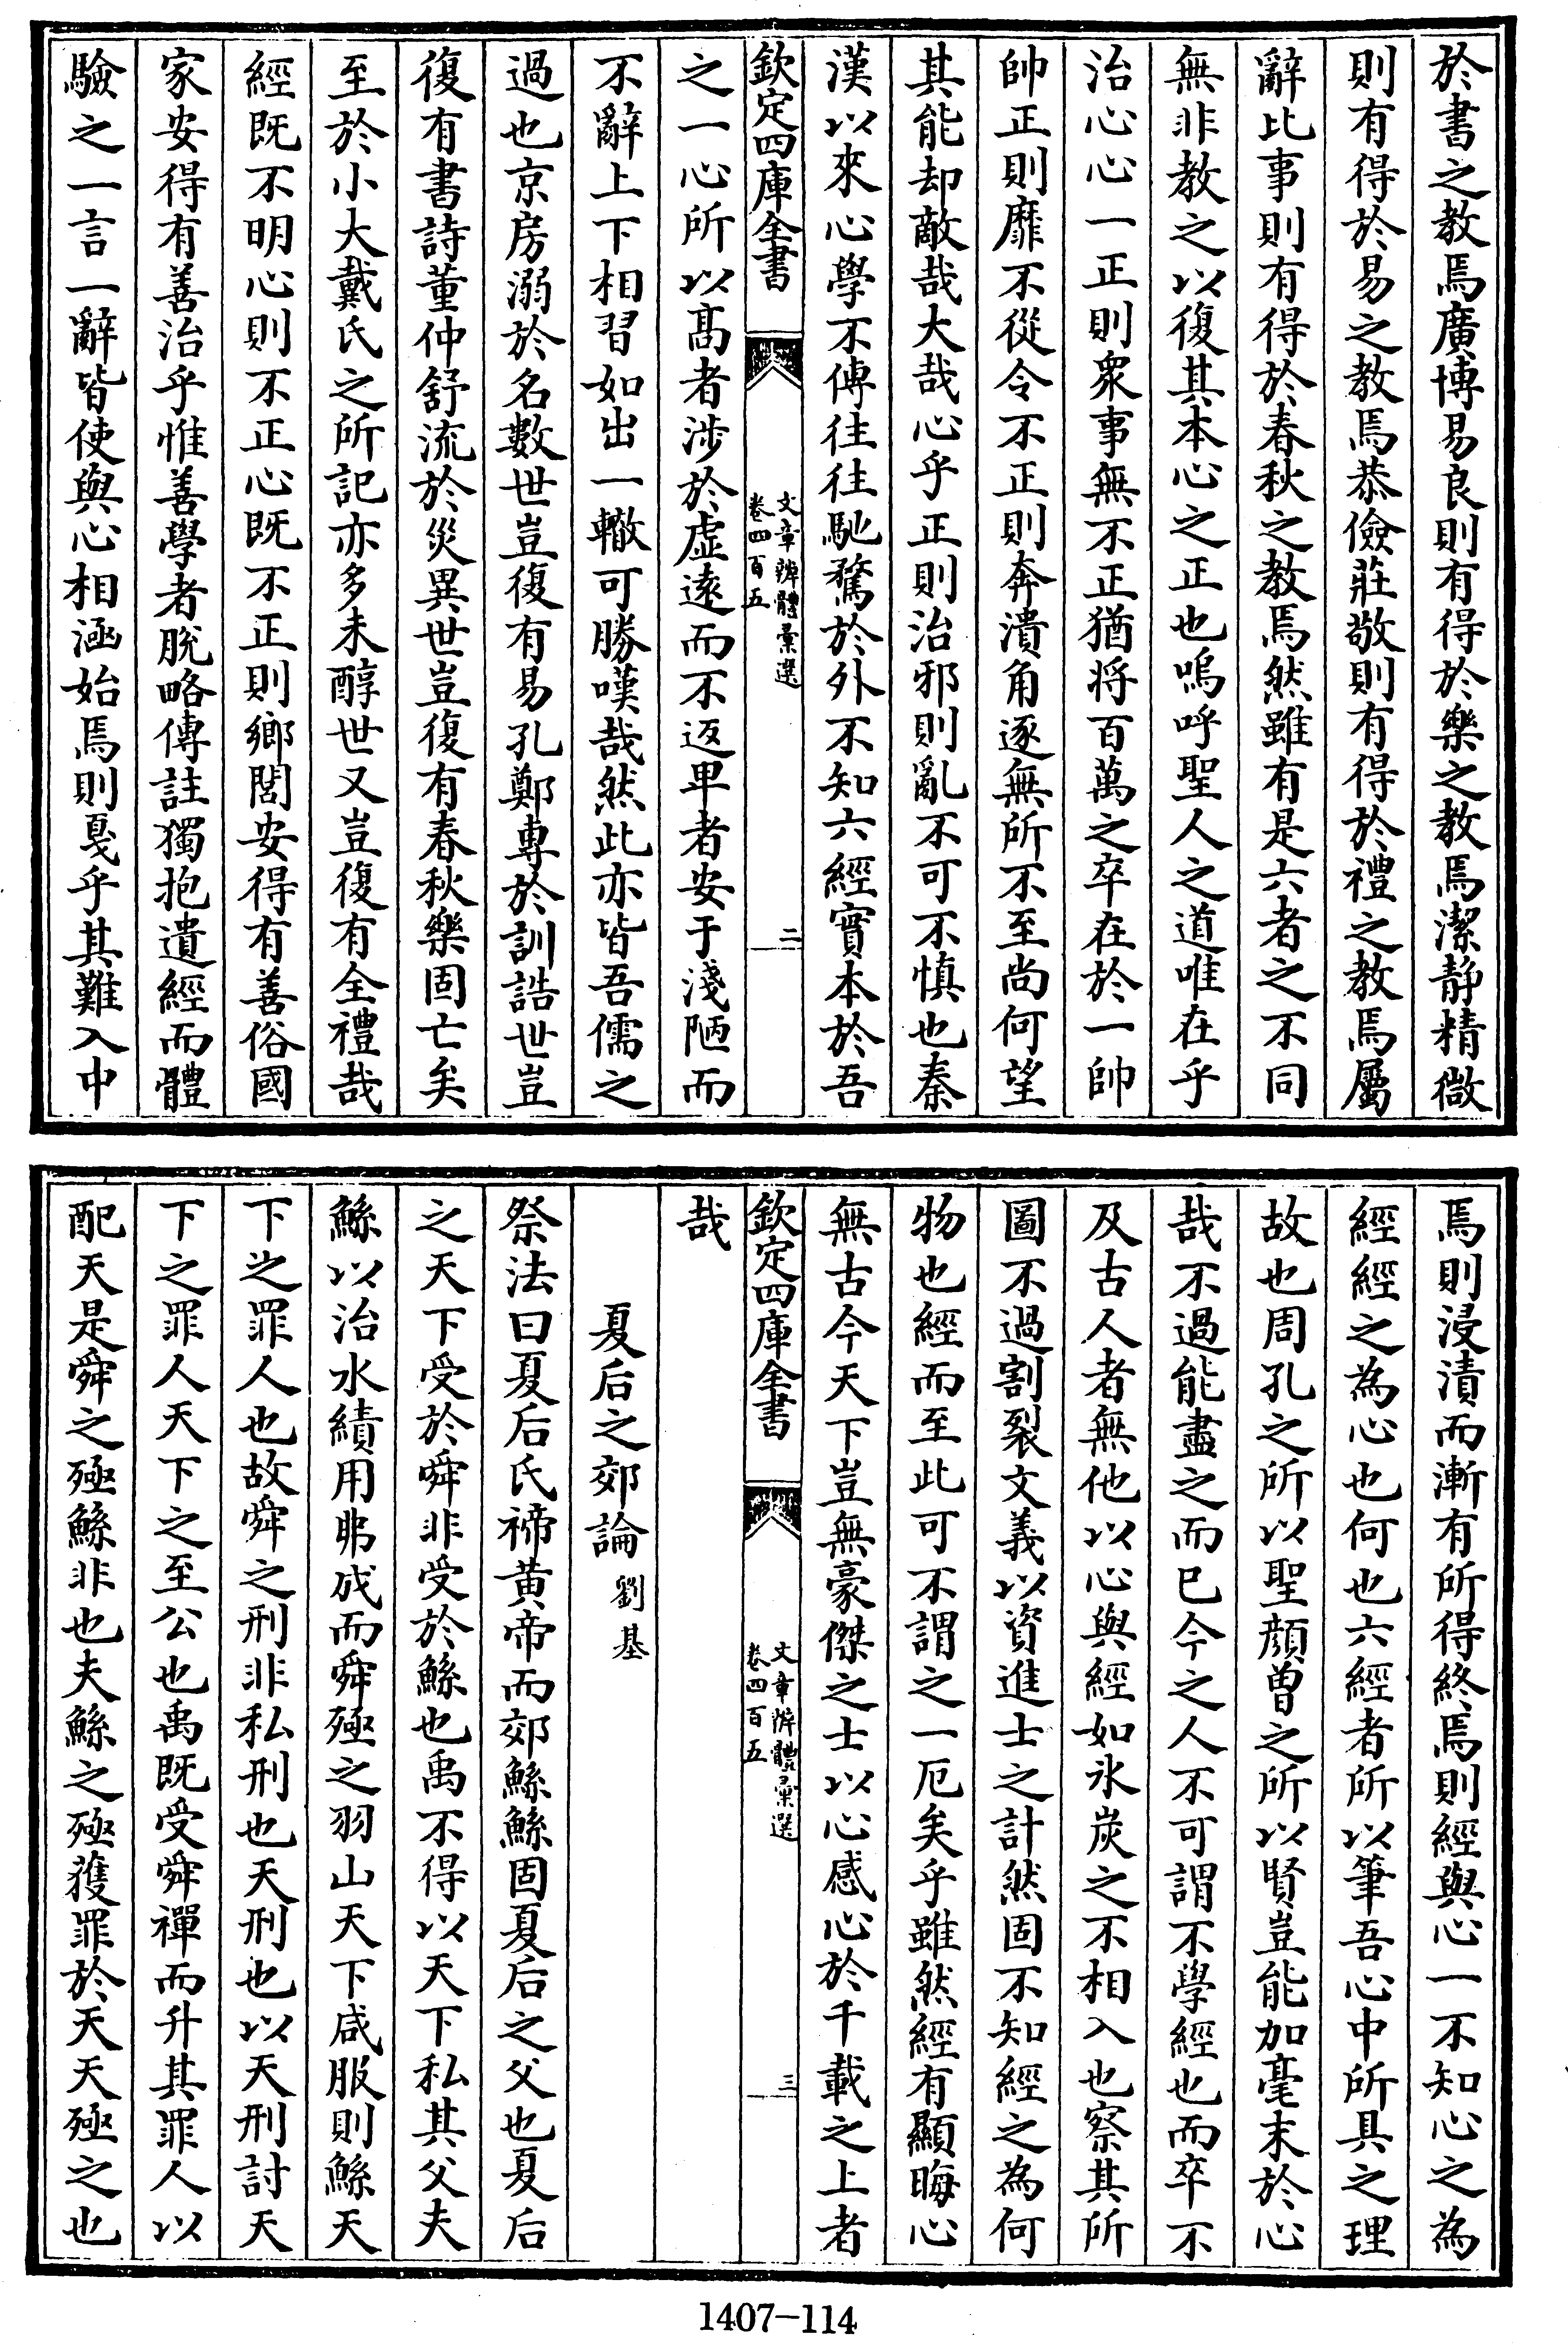 於書之教焉廣博易良則有得於樂之教焉潔靜精微
則有得於易之教焉恭儉莊敬則有得於禮之教焉屬
辭比事則有得於春秋之教焉然雖有是六者之不同
無非教之以復其本心之正也嗚呼聖人之道唯在乎
治心心一正則衆事無不正猶將百萬之卒在於一帥
帥正則靡不從令不正則奔潰角逐無所不至尚何望
其能却敵哉大哉心乎正則治邪則亂不可不慎也秦
漢以來心學不傳往往馳騖於外不知六經實本於吾
欽定四庫全書
文章辨體彙選
卷四百五
二
之一心所以髙者涉於虚遠而不返卑者安于淺陋而
不辭上下相習如出一轍可勝嘆哉然此亦皆吾儒之
過也京房溺於名數世豈復有易孔鄭專於訓詁世豈
復有書詩董仲舒流於災異世豈復有春秋樂固亡矣
至於小大戴氏之所記亦多未醇世又豈復有全禮哉
經既不明心則不正心既不正則鄉閭安得有善俗國
家安得有善治乎惟善學者脫略傳註獨抱遺經而體
驗之一言一辭皆使與心相涵始焉則戛乎其難入中
焉則浸漬而漸有所得終焉則經與心一不知心之為
經經之為心也何也六經者所以筆吾心中所具之理
故也周孔之所以聖顔曾之所以賢豈能加毫末於心
哉不過能盡之而已今之人不可謂不學經也而卒不
及古人者無他以心與經如氷炭之不相入也察其所
圖不過割裂文義以資進士之計然固不知經之為何
物也經而至此可不謂之一厄矣乎雖然經有顯晦心
無古今天下豈無豪傑之士以心感心於千載之上者
欽定四庫全書
文章辨體彙選
卷四百五
三
哉
夏后之郊論劉基
祭法曰夏后氏禘黄帝而郊鯀鯀固夏后之父也夏后
之天下受於舜非受於鯀也禹不得以天下私其父夫
鯀以治水績用弗成而舜殛之羽山天下咸服則鯀天
下之罪人也故舜之刑非私刑也天刑也以天刑討天
下之罪人天下之至公也禹既受舜禪而升其罪人以
配天是舜之殛鯀非也夫鯀之殛獲罪於天天殛之也
1407-114